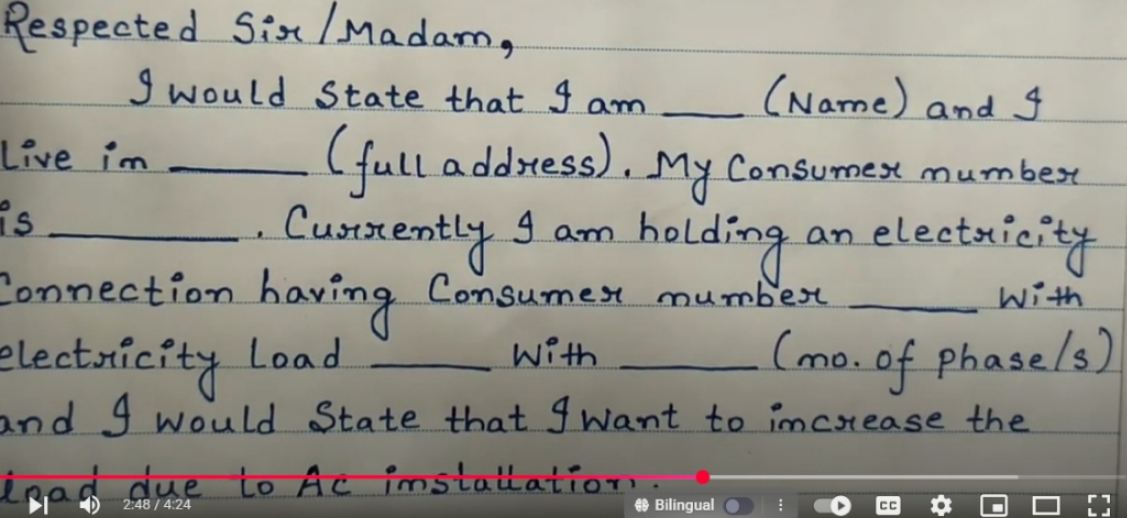 Respected Sir/Madam,
I would State that I am ____ (Name) and I
Live in ______ (full address). My Consumer number
is ________. Currently I am holding an electricity
Connection having Consumer number ______ with
electricity Load ______ with ______ (no. of phase/s)
and I would State that I want to increase the
load due to Ac installation.
2:48 / 4:24
Bilingual
CC